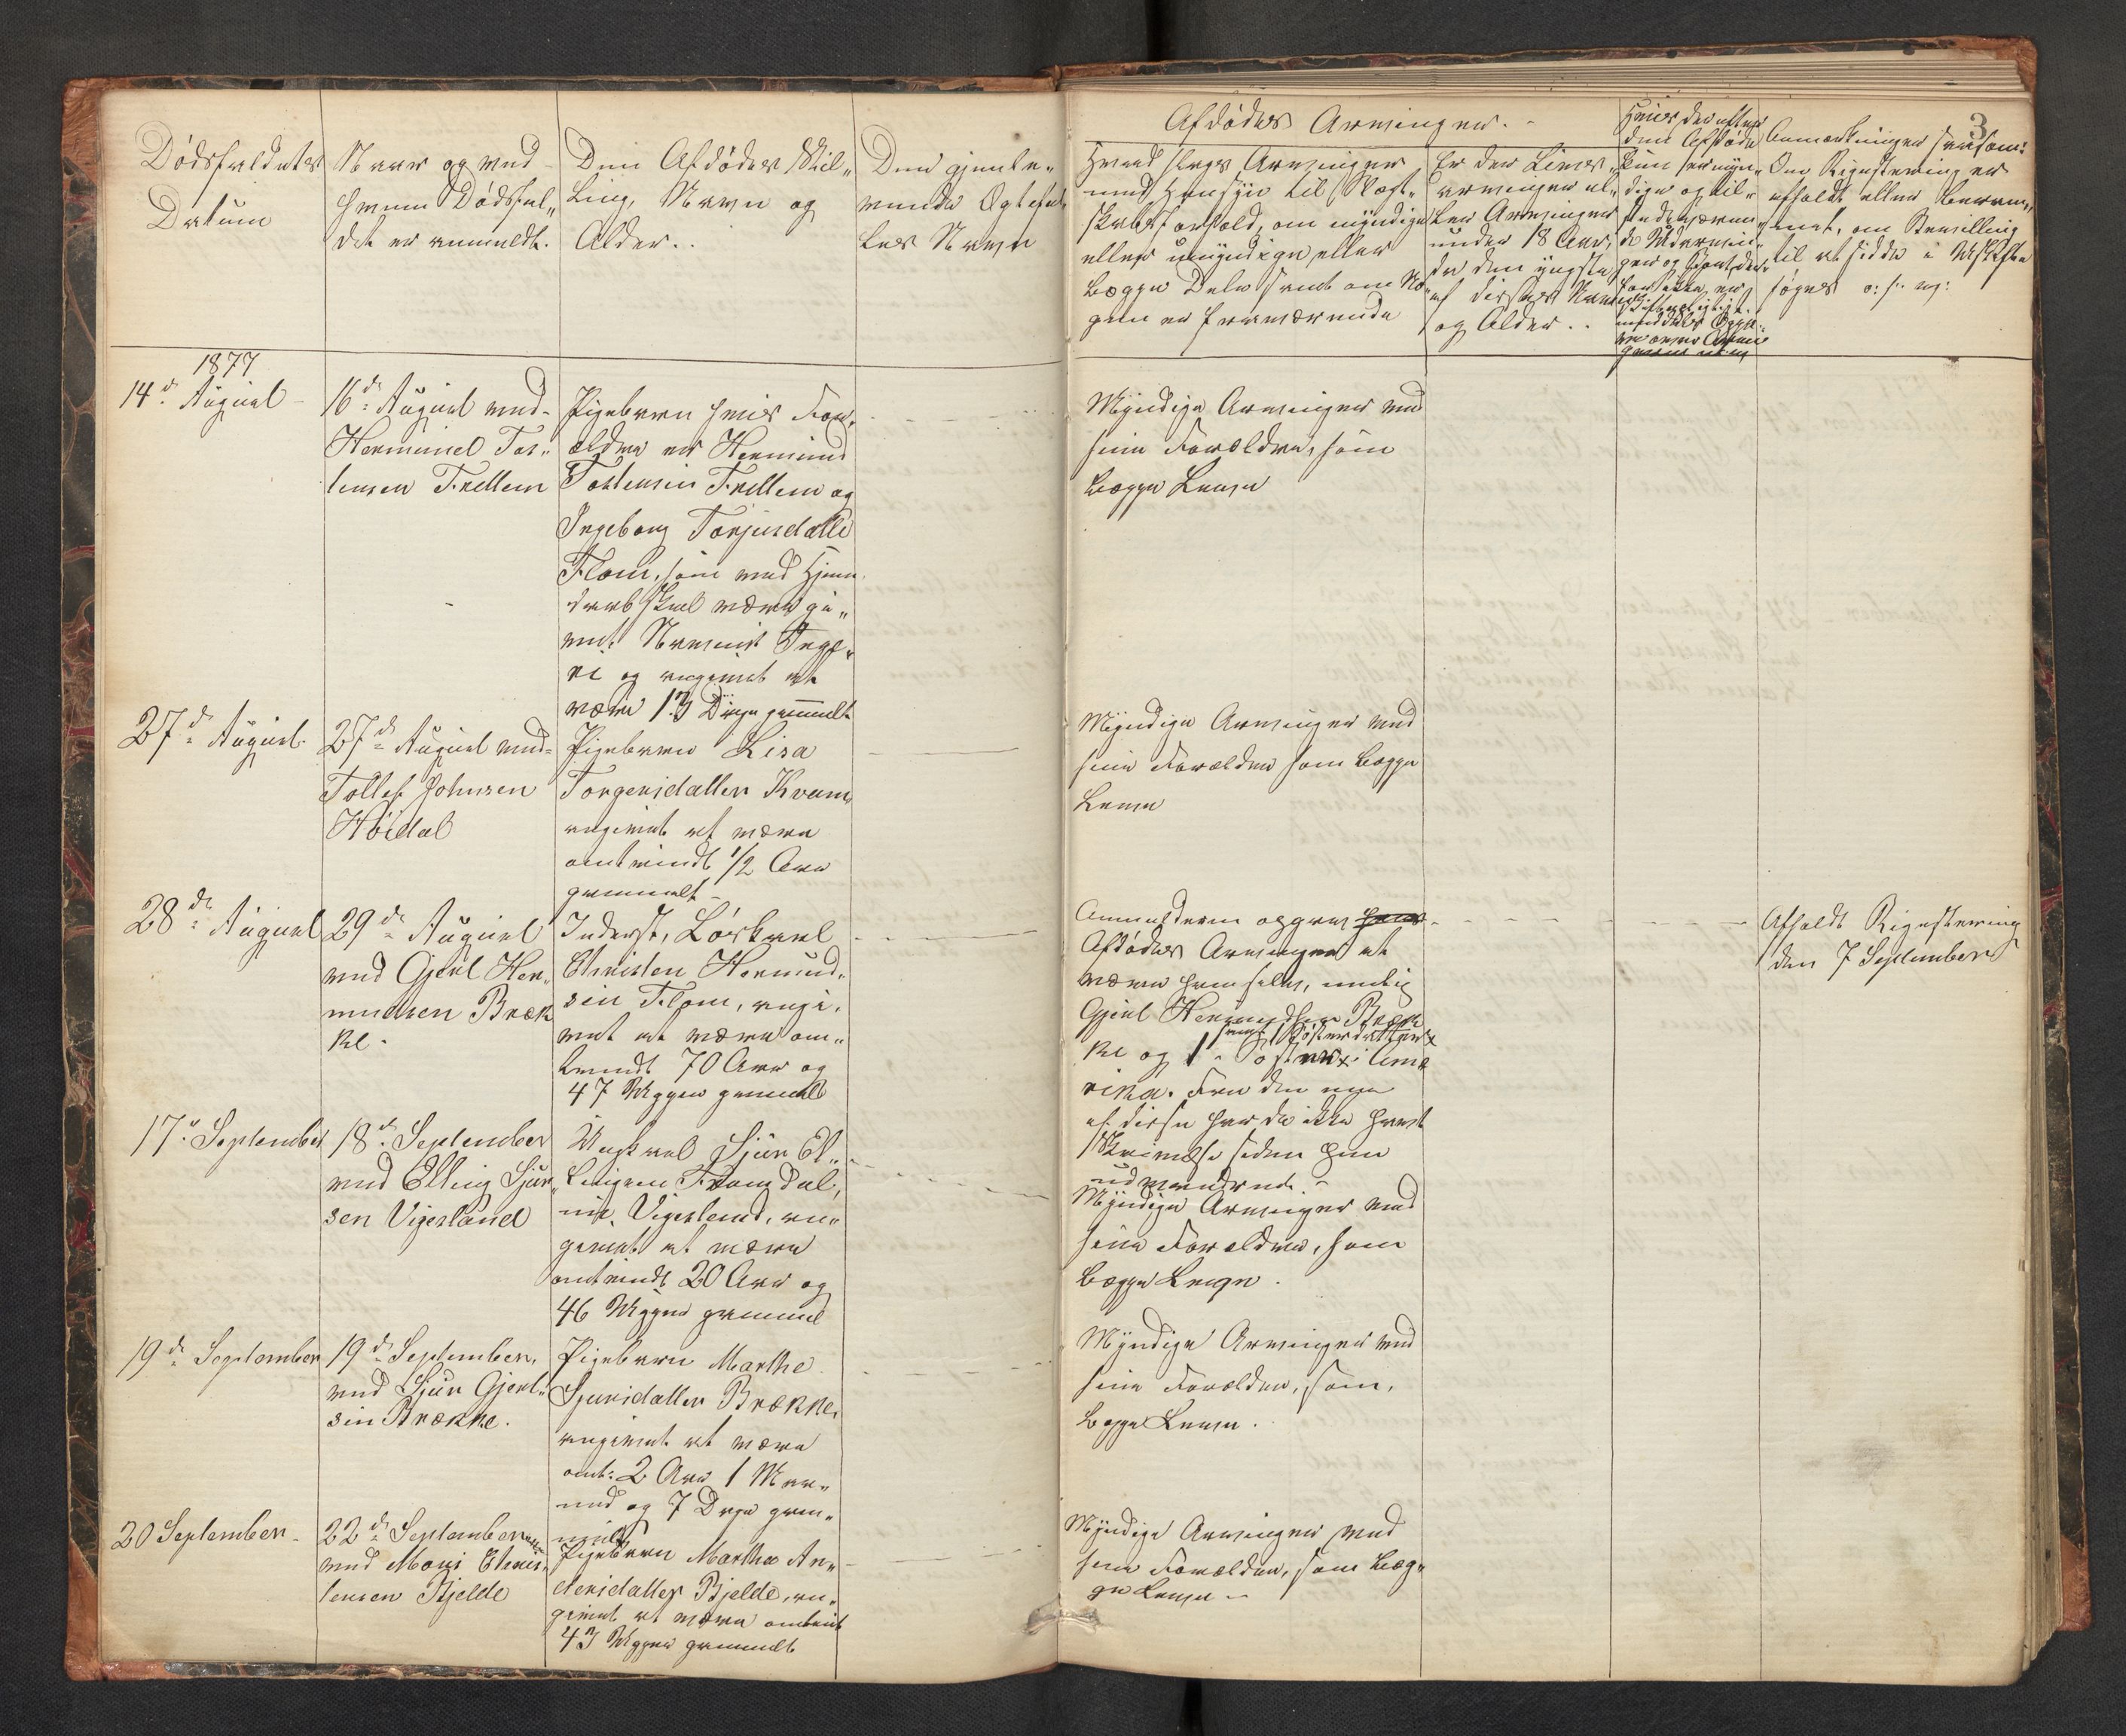 3
Dødsfaldets
Datum
Naar og ved
hvem Dødsfal„
det er anmeldt.
Den Afdødes Stil„
ling, Navn og
Alder..
Den gjenle„
vende Ægtefæl„
les Navn
Afdødes Arvinger. -
Hvad slags Arvinger
med Hensyn til Slægt„
skabsforhold, om myndige
eller umyndige eller
begge Dele samt om No„
gen er fraværende
Er der Livs„
arvinger el„
ler Arvinger
under 18 Aar,
da den yngste
af disses Navn
og Alder..
Hvis der efter
den Afdøde
kun er myn„
dige og til„
stedeværen„
de Arvin„
ger og
Anmærkninger saasom:
Om Registrering er
afholdt eller beram„
met, om Bevilling
til at sidde i Uskifte
søges o: s: v:
1877
14d August -
16d August ved
Hermund Tos„
tensen Fretlem
Pigebarn hvis For„
ældre er Hermund
Tostensen Fretlem og
Ingeborg Torjusdatte
Flom, som ved Hjem„
medaab skal være gi„
vet Navnet Inge„
ri og angivet at
være 13 Dage gammelt
Myndige Arvinger ved
sine Forældre, som
begge Leve
27de August
27de August ved
Tollef Johnsen
Høidal
Pigebarn Lisa
Torgersdatter Kvam„
angivet at være
omtrendt 1/2 Aar
gammelt -
Myndige Arvinger ved
sine Forældre som begge
Leve
28de August
29de August
ved Gjert Her„
mundsen Bræk
ke -
Inderst, Løskarl
Christen Hermund„
sen Flom, angi„
vet at være om„
trendt 70 Aar og
47 Uger gammel
Anmelderen opgav
Afdødes Arvinger at
være ham selv, nemlig
Gjert Hermundsen Bræk
ke og 1 Søster i Ame
samt 1 Søsterdatter
rika. Fra den ene
af disse har de ikke havt
Skrivelse siden hun
udvandrede. -
Afholdt Registrering
den 7 September
17d September
18d September
ved Elling Sjur„
sen Vigesland
Ungkarl Sjur El„
lingsen Framdal,
nu Vigesland, an„
givet at være
omtrendt 20 Aar og
46 Uger gammel
Myndige Arvinger ved
sine Forældre, som
begge Leve.
19de September
19de September,
ved Sjur Gjert„
sen Brække.
Pigebarn Marthe
Sjursdatter Brække,
angivet at være
omt: 2 Aar 1 Maa„
ned og 7 Dage gam„
melt
Myndige Arvinger ved
sine Forældre, som,
begge Leve.
20 September -
22de September
ved Mons Chris„
tensen Bjelde
Pigebarn Martha An„
dersdatter Bjelde, an„
givet at være omtrent
43 Uger gammelt
Myndige Arvinger ved
sine Forældre, som beg„
ge Leve -